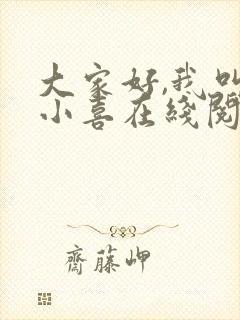 大家好,我叫
小喜在綫閱
齋藤岬